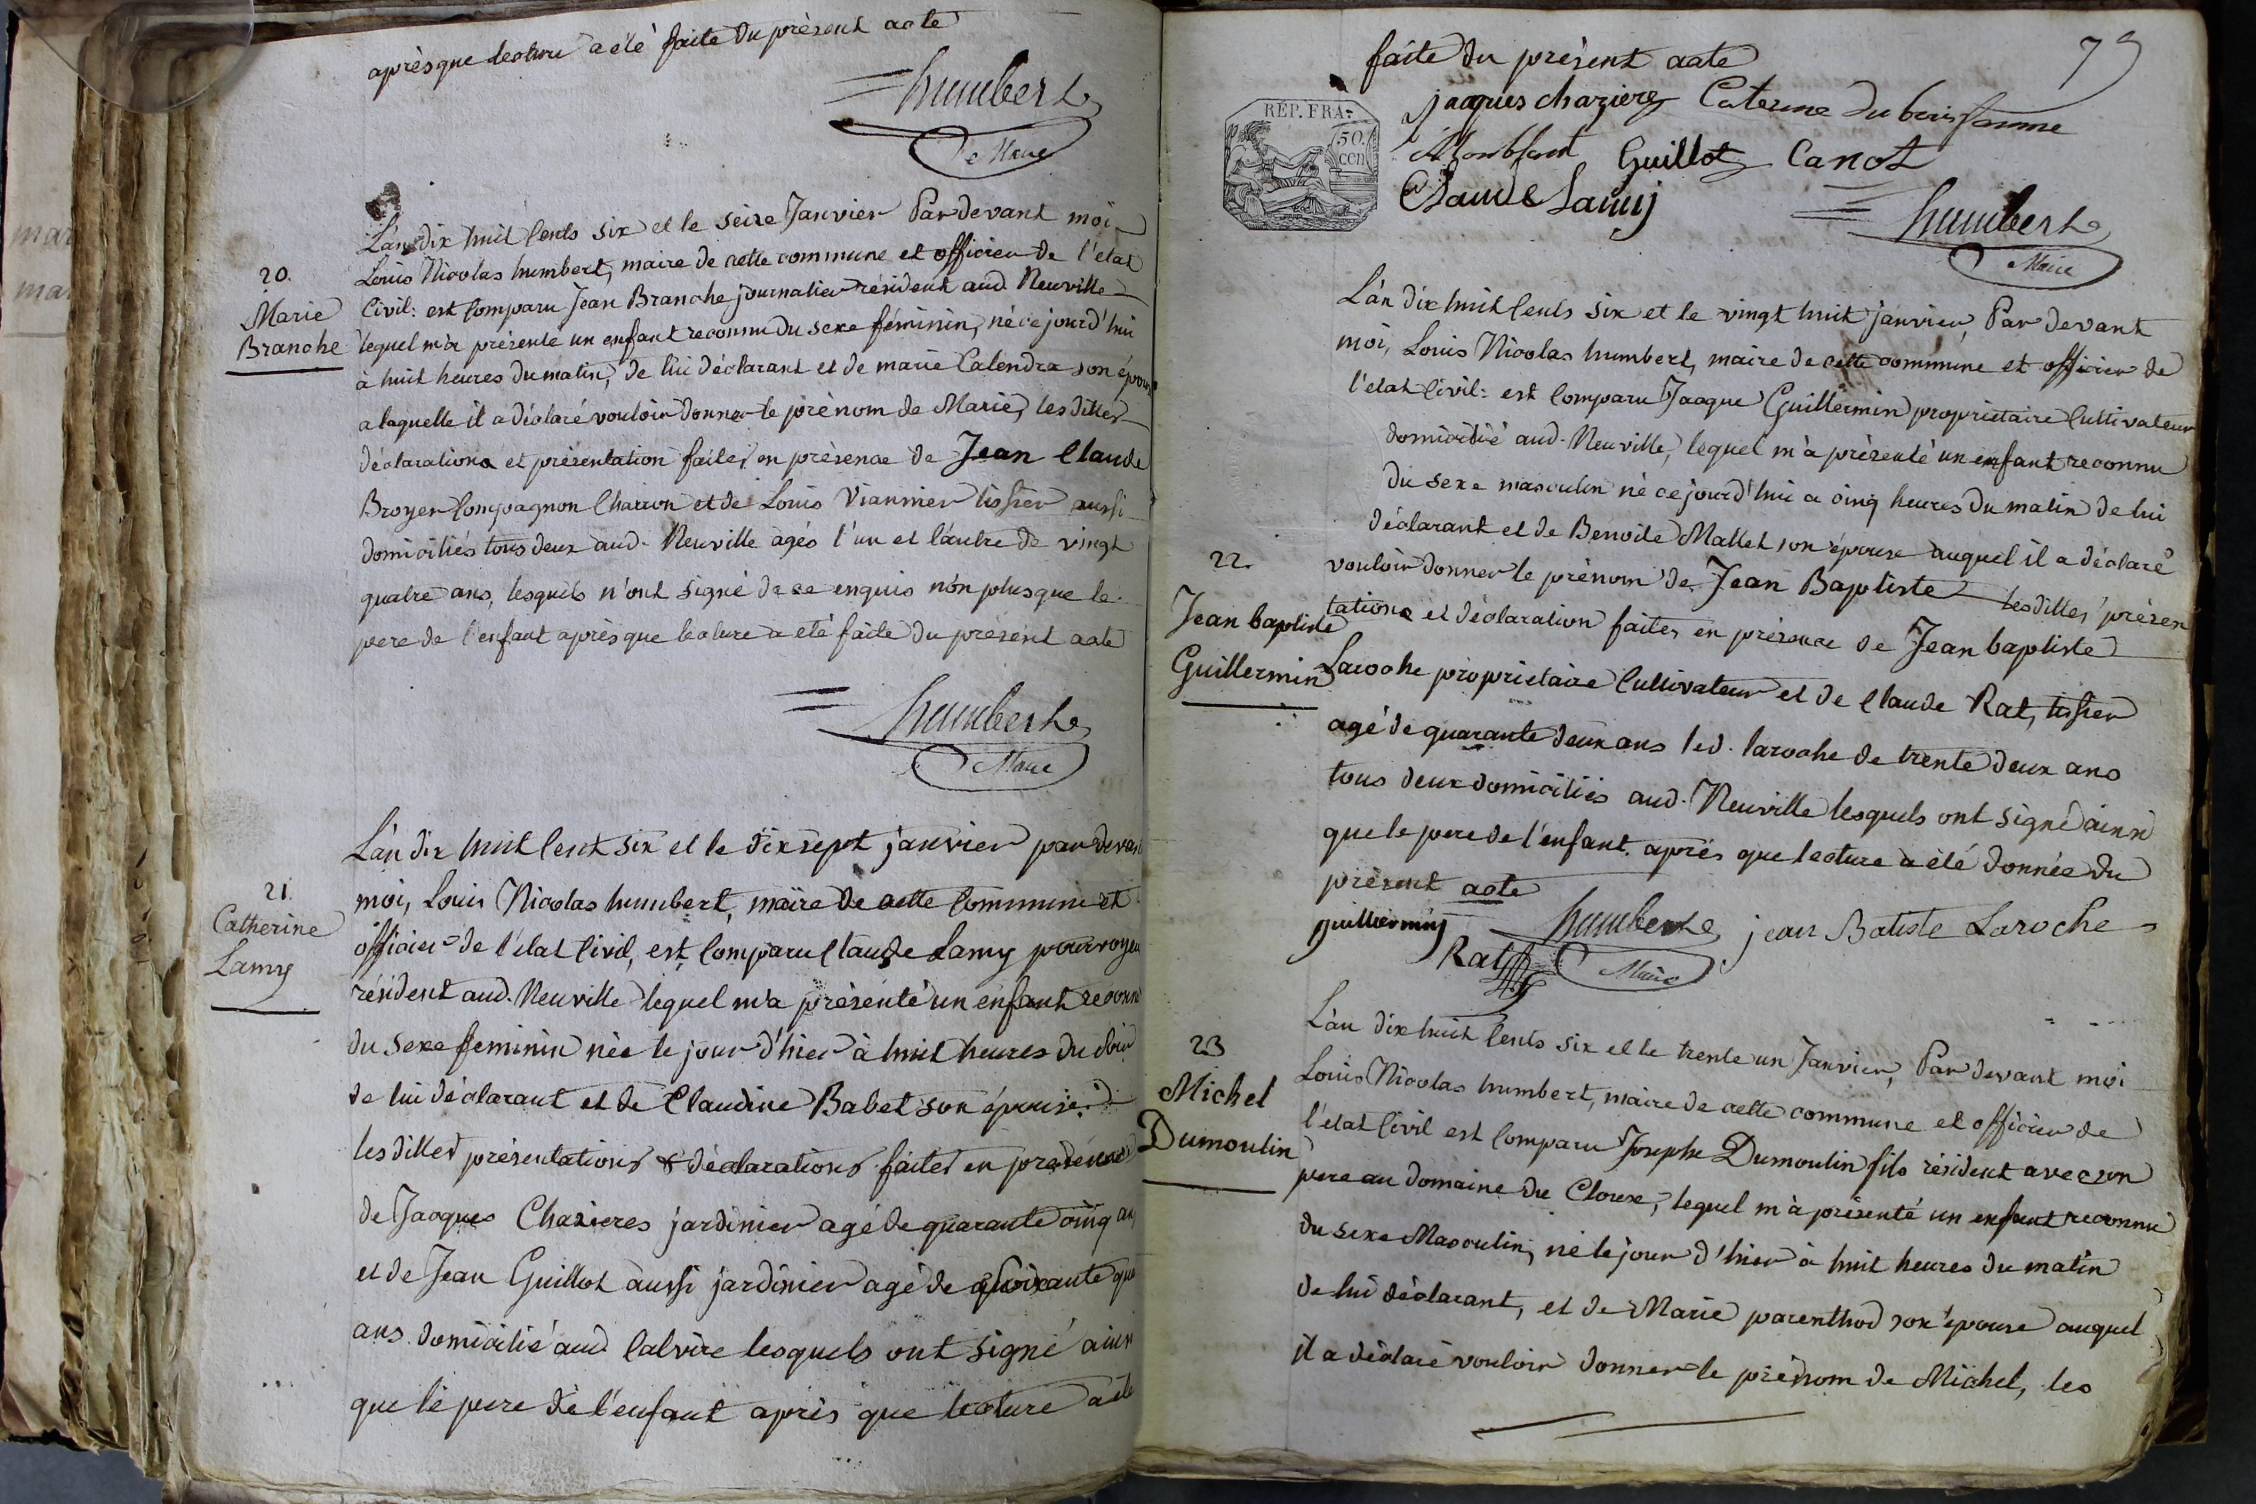 après que lecture a été faite du présent acte
humbert
Maire
L'an dix huit Cents six et le seize Janvier Par devant moi
Louis Nicolas humbert, maire de cette commune et officier de l'état
Civil: est Comparu Jean Branche journalier résident aud Neuville
20.
Marie
Branche
lequel m'a présenté un enfant reconnu du sexe féminin, né ce jourd'hui
à huit heures du matin, de lui déclarant et de marie Calendra son épouse
a laquelle il a déclaré vouloir donner le prénom de Marie, les dittes
déclarations et présentation faites en présence de Jean Claude
Broyer Compagnon Charron et de Louis Viannier tissier aussi
domiciliés tous deux aud. Neuville agés l'un et l'autre de vingt
quatre ans, lesquels n'ont signé de ce enquis non plus que le
pere de l'enfant après que lecture a été faite du présent acte
humbert
Maire
L'an dix huit Cent six et le dix sept janvier par devant
moi, Louis Nicolas humbert, maire de cette Commune et
21.
Catherine
Lamy
officier de l'état Civil, est Comparu Claude Lamy pourvoyeu
résident aud. Neuville lequel m'a présenté un enfant reconnu
du sexe feminin née le jour d'hier à huit heures du soir
de lui déclarant et de Claudine Babet son épouse.
les dittes présentations & déclarations faites en présence
de Jacques Chazieres jardinier agé de quarante cinq ans
et de Jean Guillot aussi jardinier agé de soixante qua
ans domicilié aud Calvire lesquels ont signé ainsi
que le pere de l'enfant après que lecture a été
73
faite du présent acte
REP. FRA.
50.
cen
jacques chazière Caterine du bois femme
Guillot Canot
Claude Lamy
humbert
Maire
L'an dix huit Cents six et le vingt huit janvier, Par devant
moi, Louis Nicolas humbert, maire de cette commune et officier de
l'état Civil: est Comparu Jacque Guillermin propriétaire Cultivateur
domicilié aud. Neuville, lequel m'a présenté un enfant reconnu
du sexe masculin né ce jourd'hui a cinq heures du matin de lui
déclarant et de Benoite Mallet son épouse auquel il a déclaré
22.
Jean baptiste
Guillermin
vouloir donner le prénom de Jean Baptiste les dittes présen
tations et déclaration faites en présence de Jean baptiste
Laroche propriétaire Cultivateur et de Claude Rat, tissier
agé de quarante deux ans led. laroche de trente deux ans
tous deux domiciliés aud. Neuville lesquels ont signé ainsi
que le pere de l'enfant. après que lecture a été donnée du
présent acte
guillermin humbert jean Batiste Laroche
Rat Maire
L'an dix huit Cents six et le trente un Janvier, Par devant moi
23
Michel
Dumoulin
Louis Nicolas humbert, maire de cette commune et officier de
l'état Civil est Comparu Josephe Dumoulin fils résident avec son
pere au domaine du Cloux, lequel m'a présenté un enfant reconnu
du sexe Masculin, né le jour d'hier à huit heures du matin
de lui déclarant, et de Marie parenthod son épouse auquel
il a déclaré vouloir donner le prénom de Michel, les